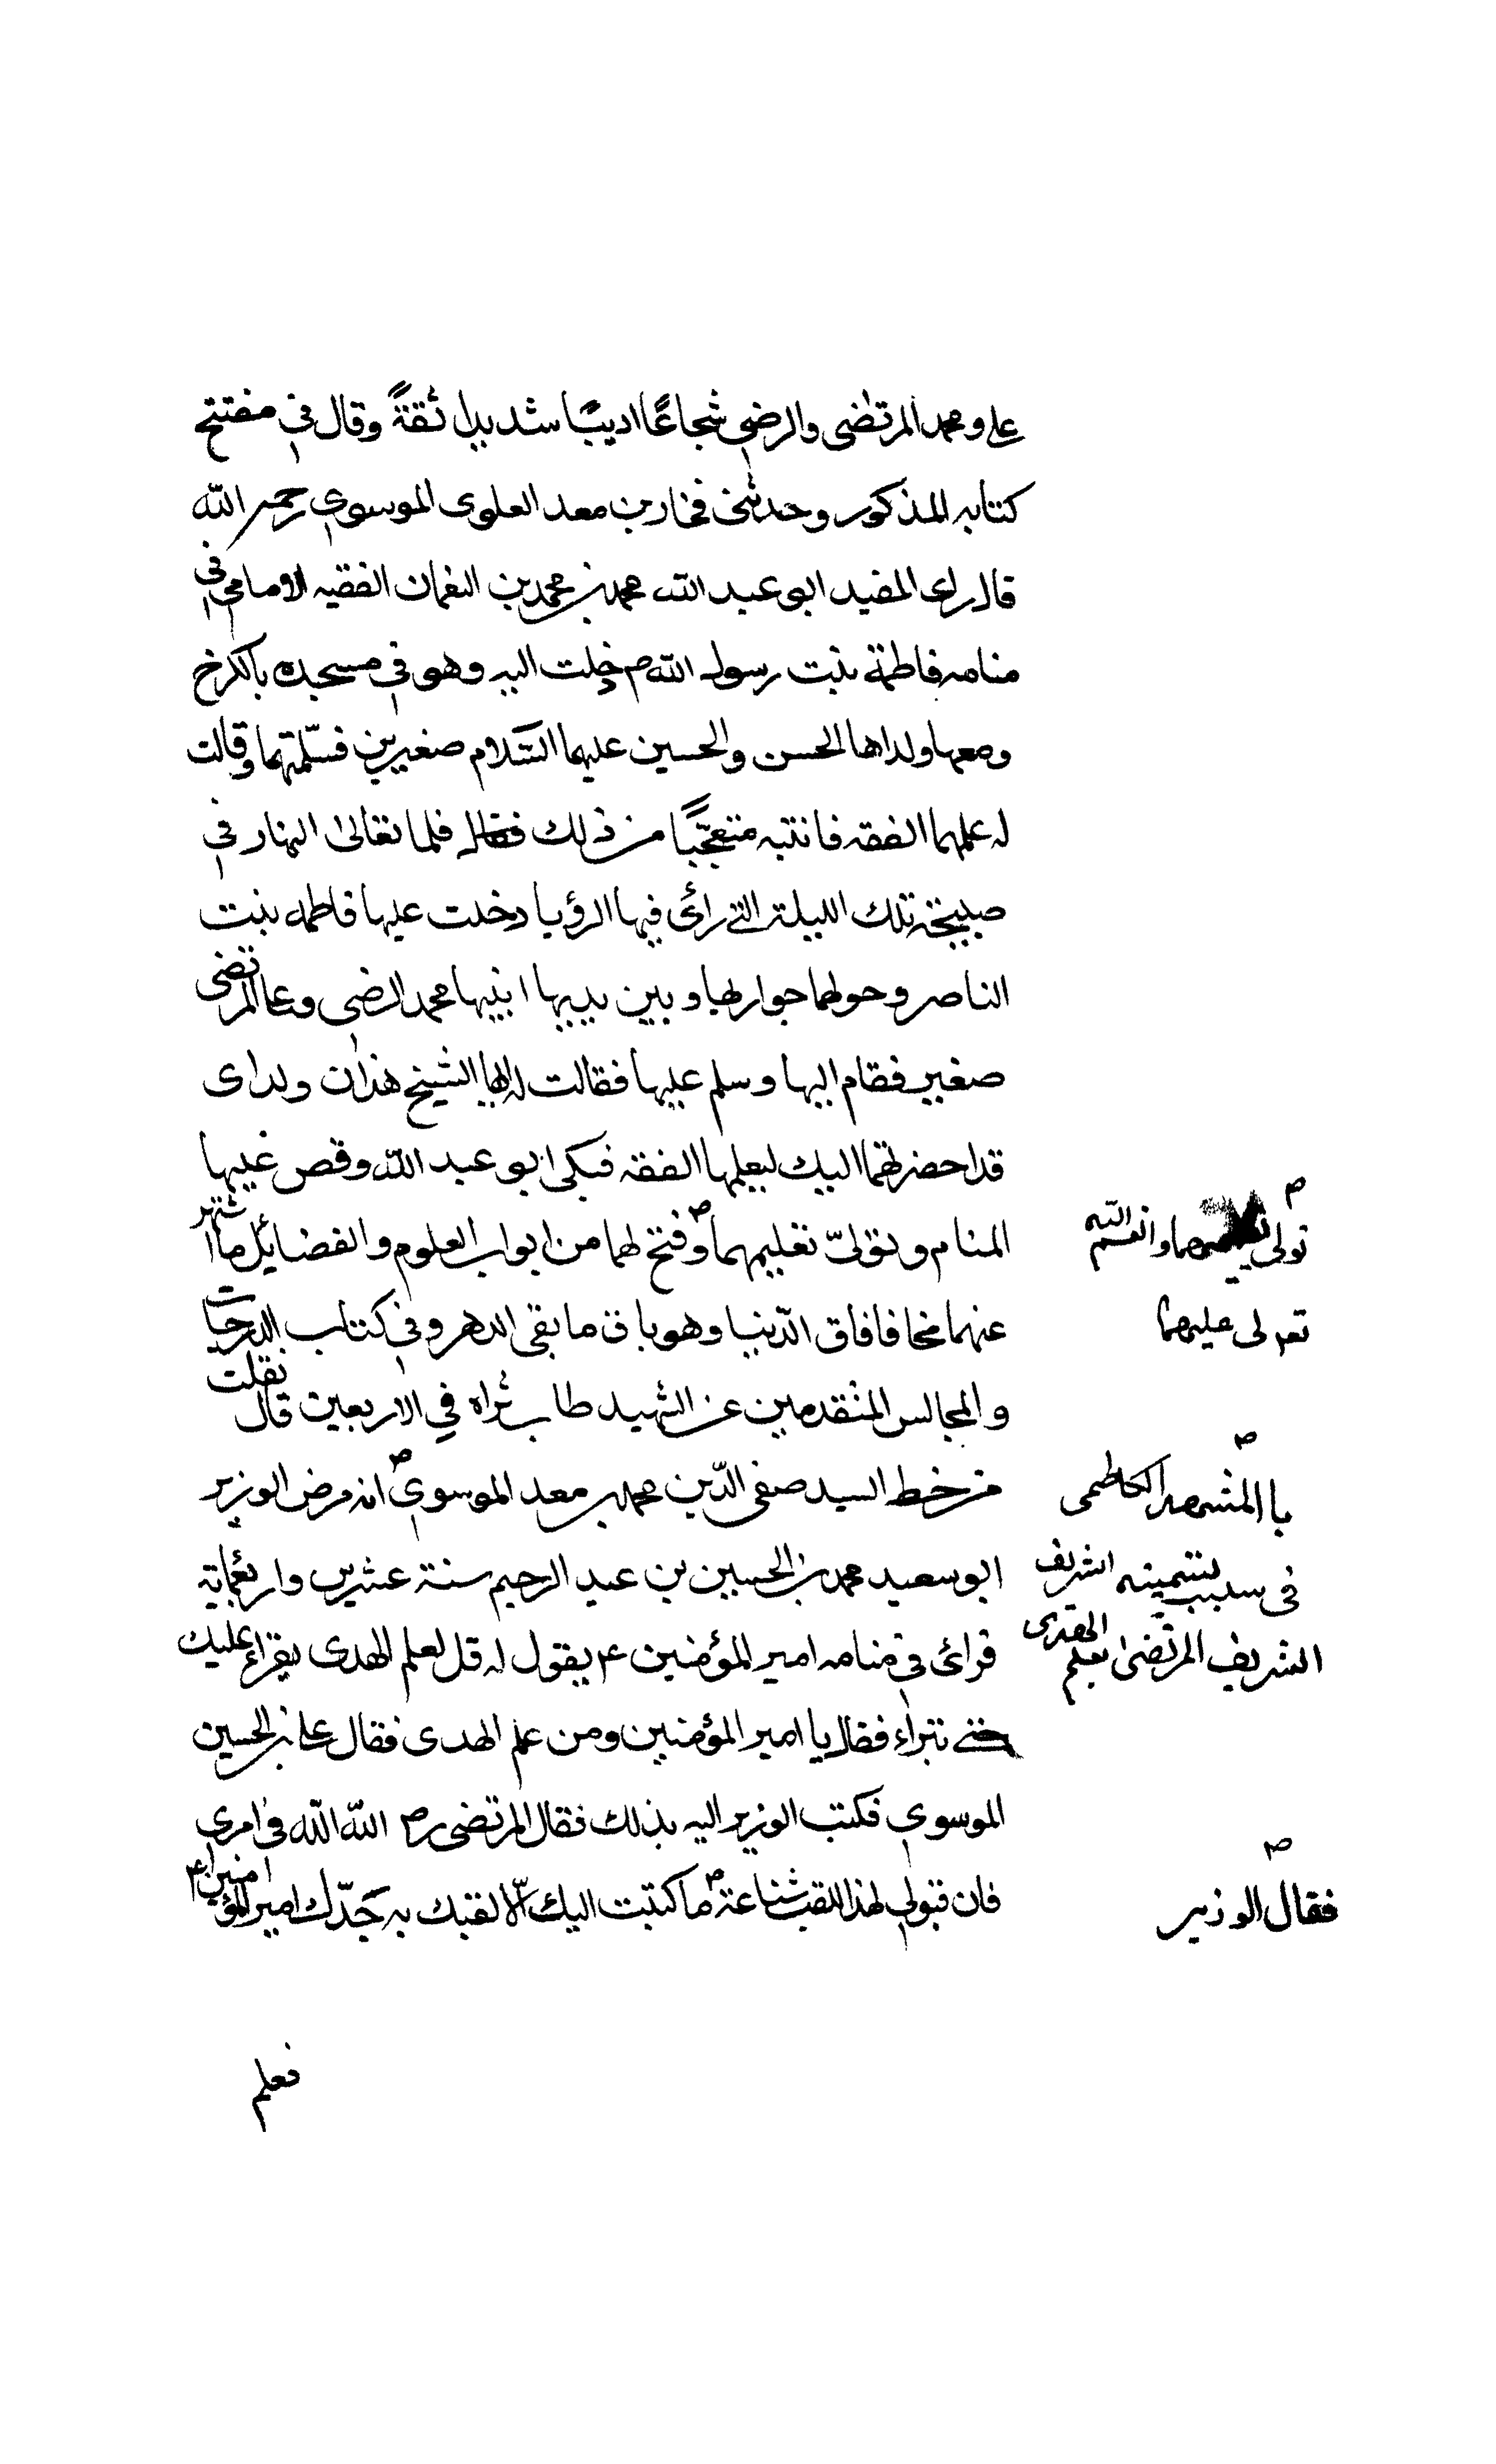 على ومحمد المرتضى والرضى شجاعًا اديبًا شديدا ثقةً وقال في مفتتح
كتابه المذكور وحدثنى فخار بن معد العلوى الموسوي رحمه الله
قال راى المفيد ابو عبد الله محمد بن محمد بن النعمان الفقيه الامامى في
منامه فاطمة بنت رسول الله ص دخلت اليه وهو في مسجده بالكرخ
ومعها ولداها الحسن والحسين عليهما السّلام صغيرين فسلّمتهما وقالت
له علمهما الفقه فانتبه متعجّبًا من ذلك فلما تعالى النهار في
صبيحة تلك الليلة التى رائ فيها الرؤيا دخلت عليها فاطمه بنت
الناصر وحولها جوارها وبين يديها ابنيها محمد الرضى وعلى المرتضى
صغير فقام اليها وسلم عليها فقالت له ايها الشيخ هذان ولداى
قد احضرتهما اليك ليعلمها الفقه فبكى ابو عبد الله وقص عليها
المنام وتولىّ تعليمهما وفتح لهما من ابواب العلوم والفضائل ما اشتهر
تولى وانعم الله
تعالى عليهما
عنهما فى افاق الدّنيا وهو باق ما بقى الدهر وفي كتاب الدرجات
والمجالس المتقدمين عن الشهيد طاب ثراه في الاربعين قال نقلت
من خط السيد صفى الدّين محمد بن معد الموسوي انه مرض الوزير
با المشهد الكاظمى
ابو سعيد محمد بن الحسين بن عبد الرحيم سنة عشرين واربعمائة
فى سبب تسمية الشريف
الشريف المرتضى بعلم الهدى
فرائ في منامه امير المؤمنين ع يقول له قل لعلم الهدى يقرأ عليك
حتى تبراء فقال يا امير المؤمنين ومن علم الهدى فقال على بن الحسين
الموسوي فكتب الوزير اليه بذلك فقال المرتضى رض الله الله فى امري
فان قبولي لهذا اللقب شناعة ما كتبت اليك الّا لقبك به جَدّك امير المؤمنين ع
فقال الوزير
فعلم